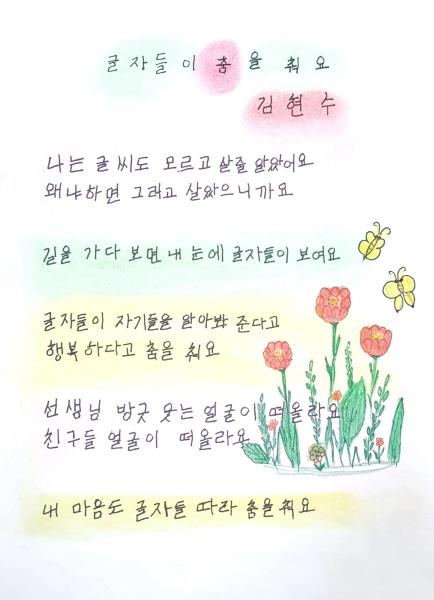 글자들이 춤을 춰요
김현수
나는 글씨도 모르고 살줄 알았어요
왜냐하면 그러고 살았으니까요
길을 가다 보면 내 눈에 글자들이 보여요
글자들이 자기들을 알아봐 준다고
행복하다고 춤을 춰요
선생님 방긋 웃는 얼굴이 떠올라요
친구들 얼굴이 떠올라요
내 마음도 글자들 따라 춤을 춰요